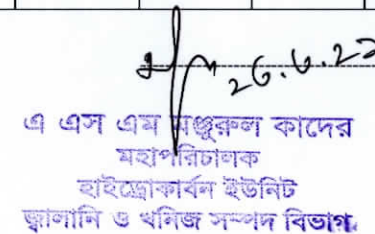 ২৬.৬.২২
এ এস এম মঞ্জুরুল কাদের
মহাপরিচালক
হাইড্রোকার্বন ইউনিট
জ্বালানি ও খনিজ সম্পদ বিভাগ